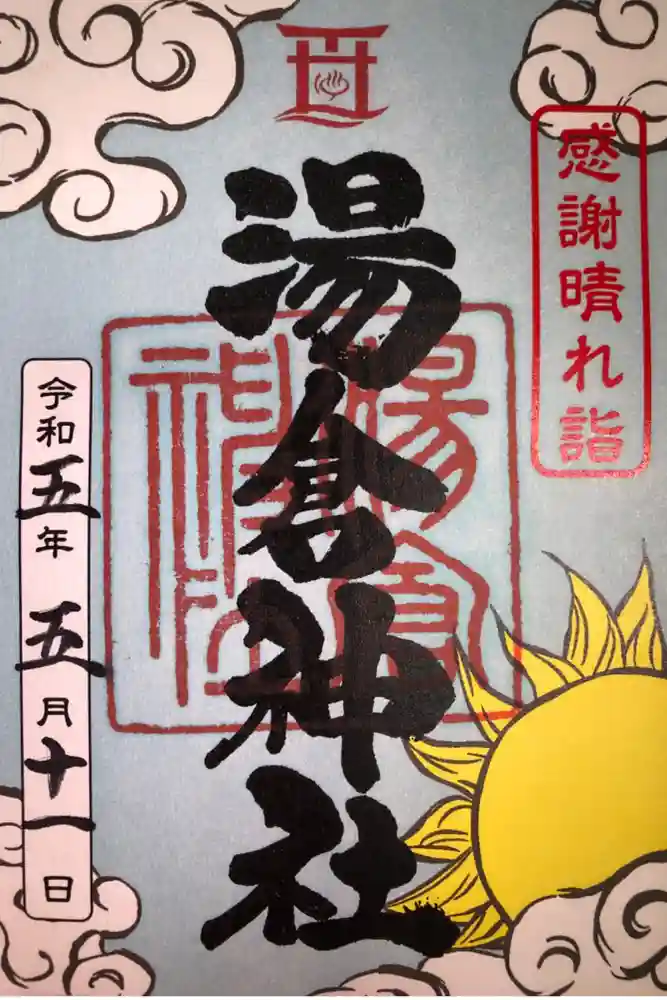 感謝晴れ詣
湯倉神社
湯倉神社
令和五年 五月十一日